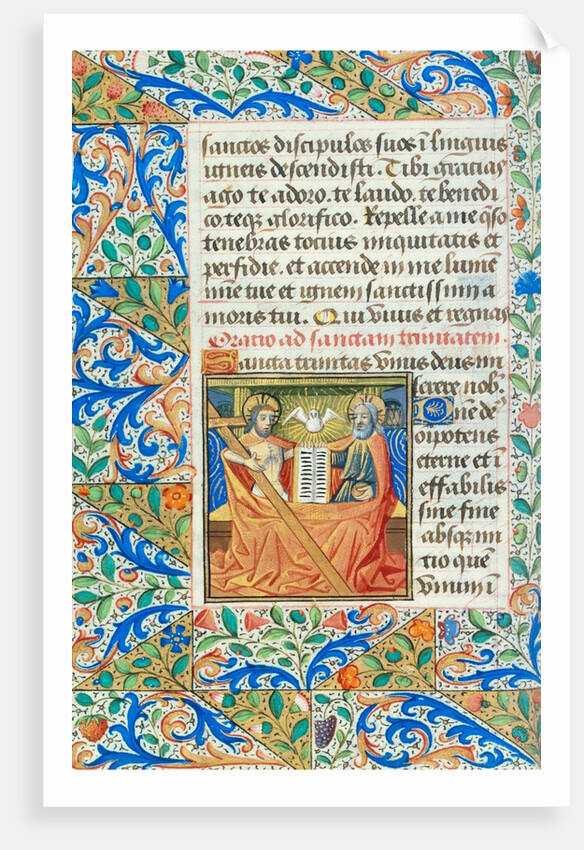 sanctos discipulos suos ī linguis
igneis descendisti. Tibi gracias
ago te adoro. te laudo. te benedi
co teqz glorifico. Repelle a me qso
tenebras tocius iniquitatis et
perfidie. et accende in me lumē
mīe tue et ignem sanctissimi a
moris tui. Qui vivis et regnas
Oratio ad sanctam trinitatem.
Sancta trinitas vnus deus mi
serere nob.
One de⁹
oīpotens
eterne et ī
effabilis
sine fine
absqz ini
tio quē
vnum ī